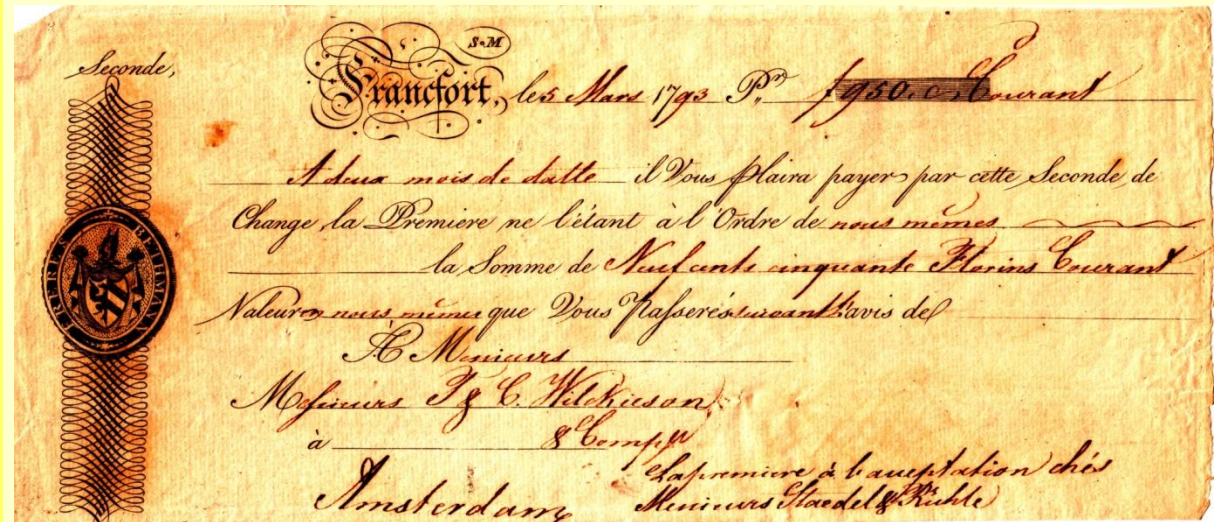 Seconde,
S·M
Francfort, les 5 Mars 1793 P.r f 950. Courant
A deux mois de datte il Vous plaira payer par cette Seconde de
Change, la Premiere ne l'étant à l'Ordre de nous mêmes
la Somme de Neuf cents cinquante Florins Courant
Valeur en nous mêmes que Vous Passerés suivant l'avis de
À Messieurs
Messieurs & C. Wilckieson
à & Comp.
Amsterdam
La premiere à l'acceptation chés
Messieurs Staedel &
FRERES BETHMANN